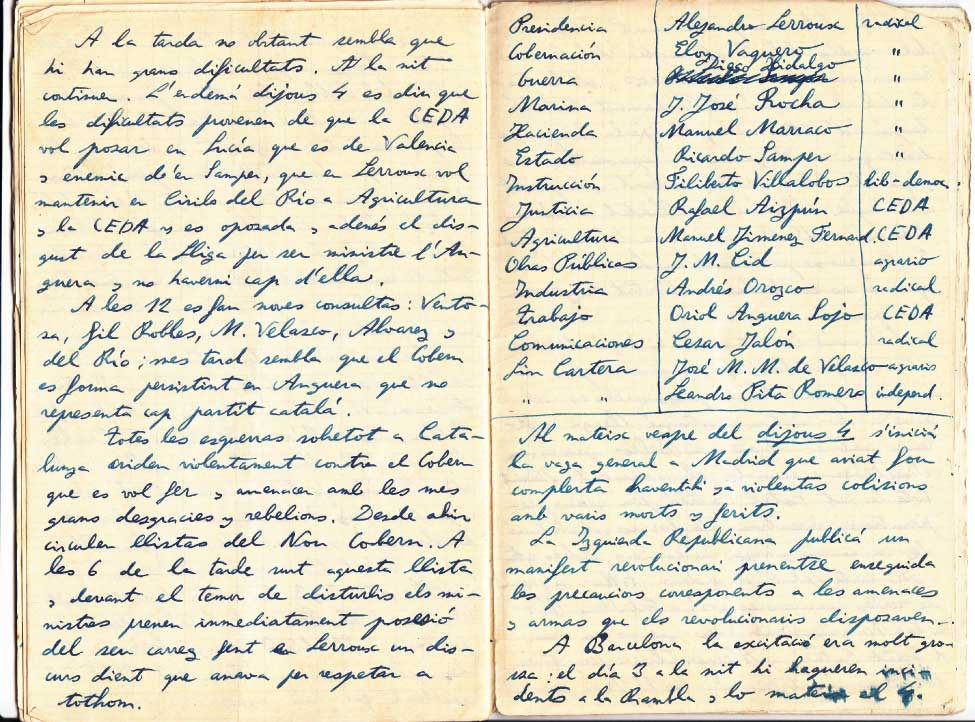 A la tarda no obstant sembla que
hi han grans dificultats. A la nit
continuen. L'endemá dijous 4 es diu que
les dificultats provenen de que la CEDA
vol posar en Lucía que es de Valencia
y enemic d'en Samper, que en Lerroux vol
mantenir en Cirilo del Río a Agricultura
y la CEDA s'y es oposada, y adenés el dis-
gust de la Lliga per ser ministre l'An-
guera y no haverni cap d'ella.
A les 12 es fan noves consultas: Vento-
sa, Gil Robles, M. Velasco, Alvarez y
del Río; mes tard sembla que el Gobern
es forma persistint en Anguera que no
representa cap partit catalá.
Totes les esquerras sobretot a Cata-
lunya criden violentament contra el Gobern
que es vol fer y amenacen amb les mes
grans desgracies y rebelions. Desde ahir
circulen llistas del Nou Gobern. A
les 6 de la tarde surt aquesta llista
y devant el temor de disturbis els mi-
nistres prenen inmediatament posesió
del seu carrec fent en Lerroux un dis-
curs dient que anava fer respetar a
tothom.
Presidencia Alejandro Lerroux radical
Gobernación Eloy Vaquero "
Guerra Diego Hidalgo "
Marina J. José Rocha "
Hacienda Manuel Marraco "
Estado Ricardo Samper "
Instrucción Filiberto Villalobos lib-democ.
Justicia Rafael Aizpún CEDA
Agricultura Manuel Jimenez Fernand. CEDA
Obras Públicas J. M. Cid agrario
Industria Andrés Orozco radical
Trabajo Oriol Anguera Sojo CEDA
Comunicaciones Cesar Jalón radical
Sin Cartera José M. M. de Velasco agrario
" " Leandro Pita Romero independ.
Al mateix vespre del dijous 4 s'iniciá
la vaga general a Madrid que aviat fou
complerta haventhi ya violentas colisions
amb varis morts y ferits.
La Izquierda Republicana publicá un
manifest revolucionari prenentse enseguida
les precaucions corresponents a les amenaces
y armas que els revolucionaris disposaven...
A Barcelona la excitació era molt gro-
sa: el día 3 a la nit hi hagueren inci-
dents a la Rambla y lo mateix el 4.